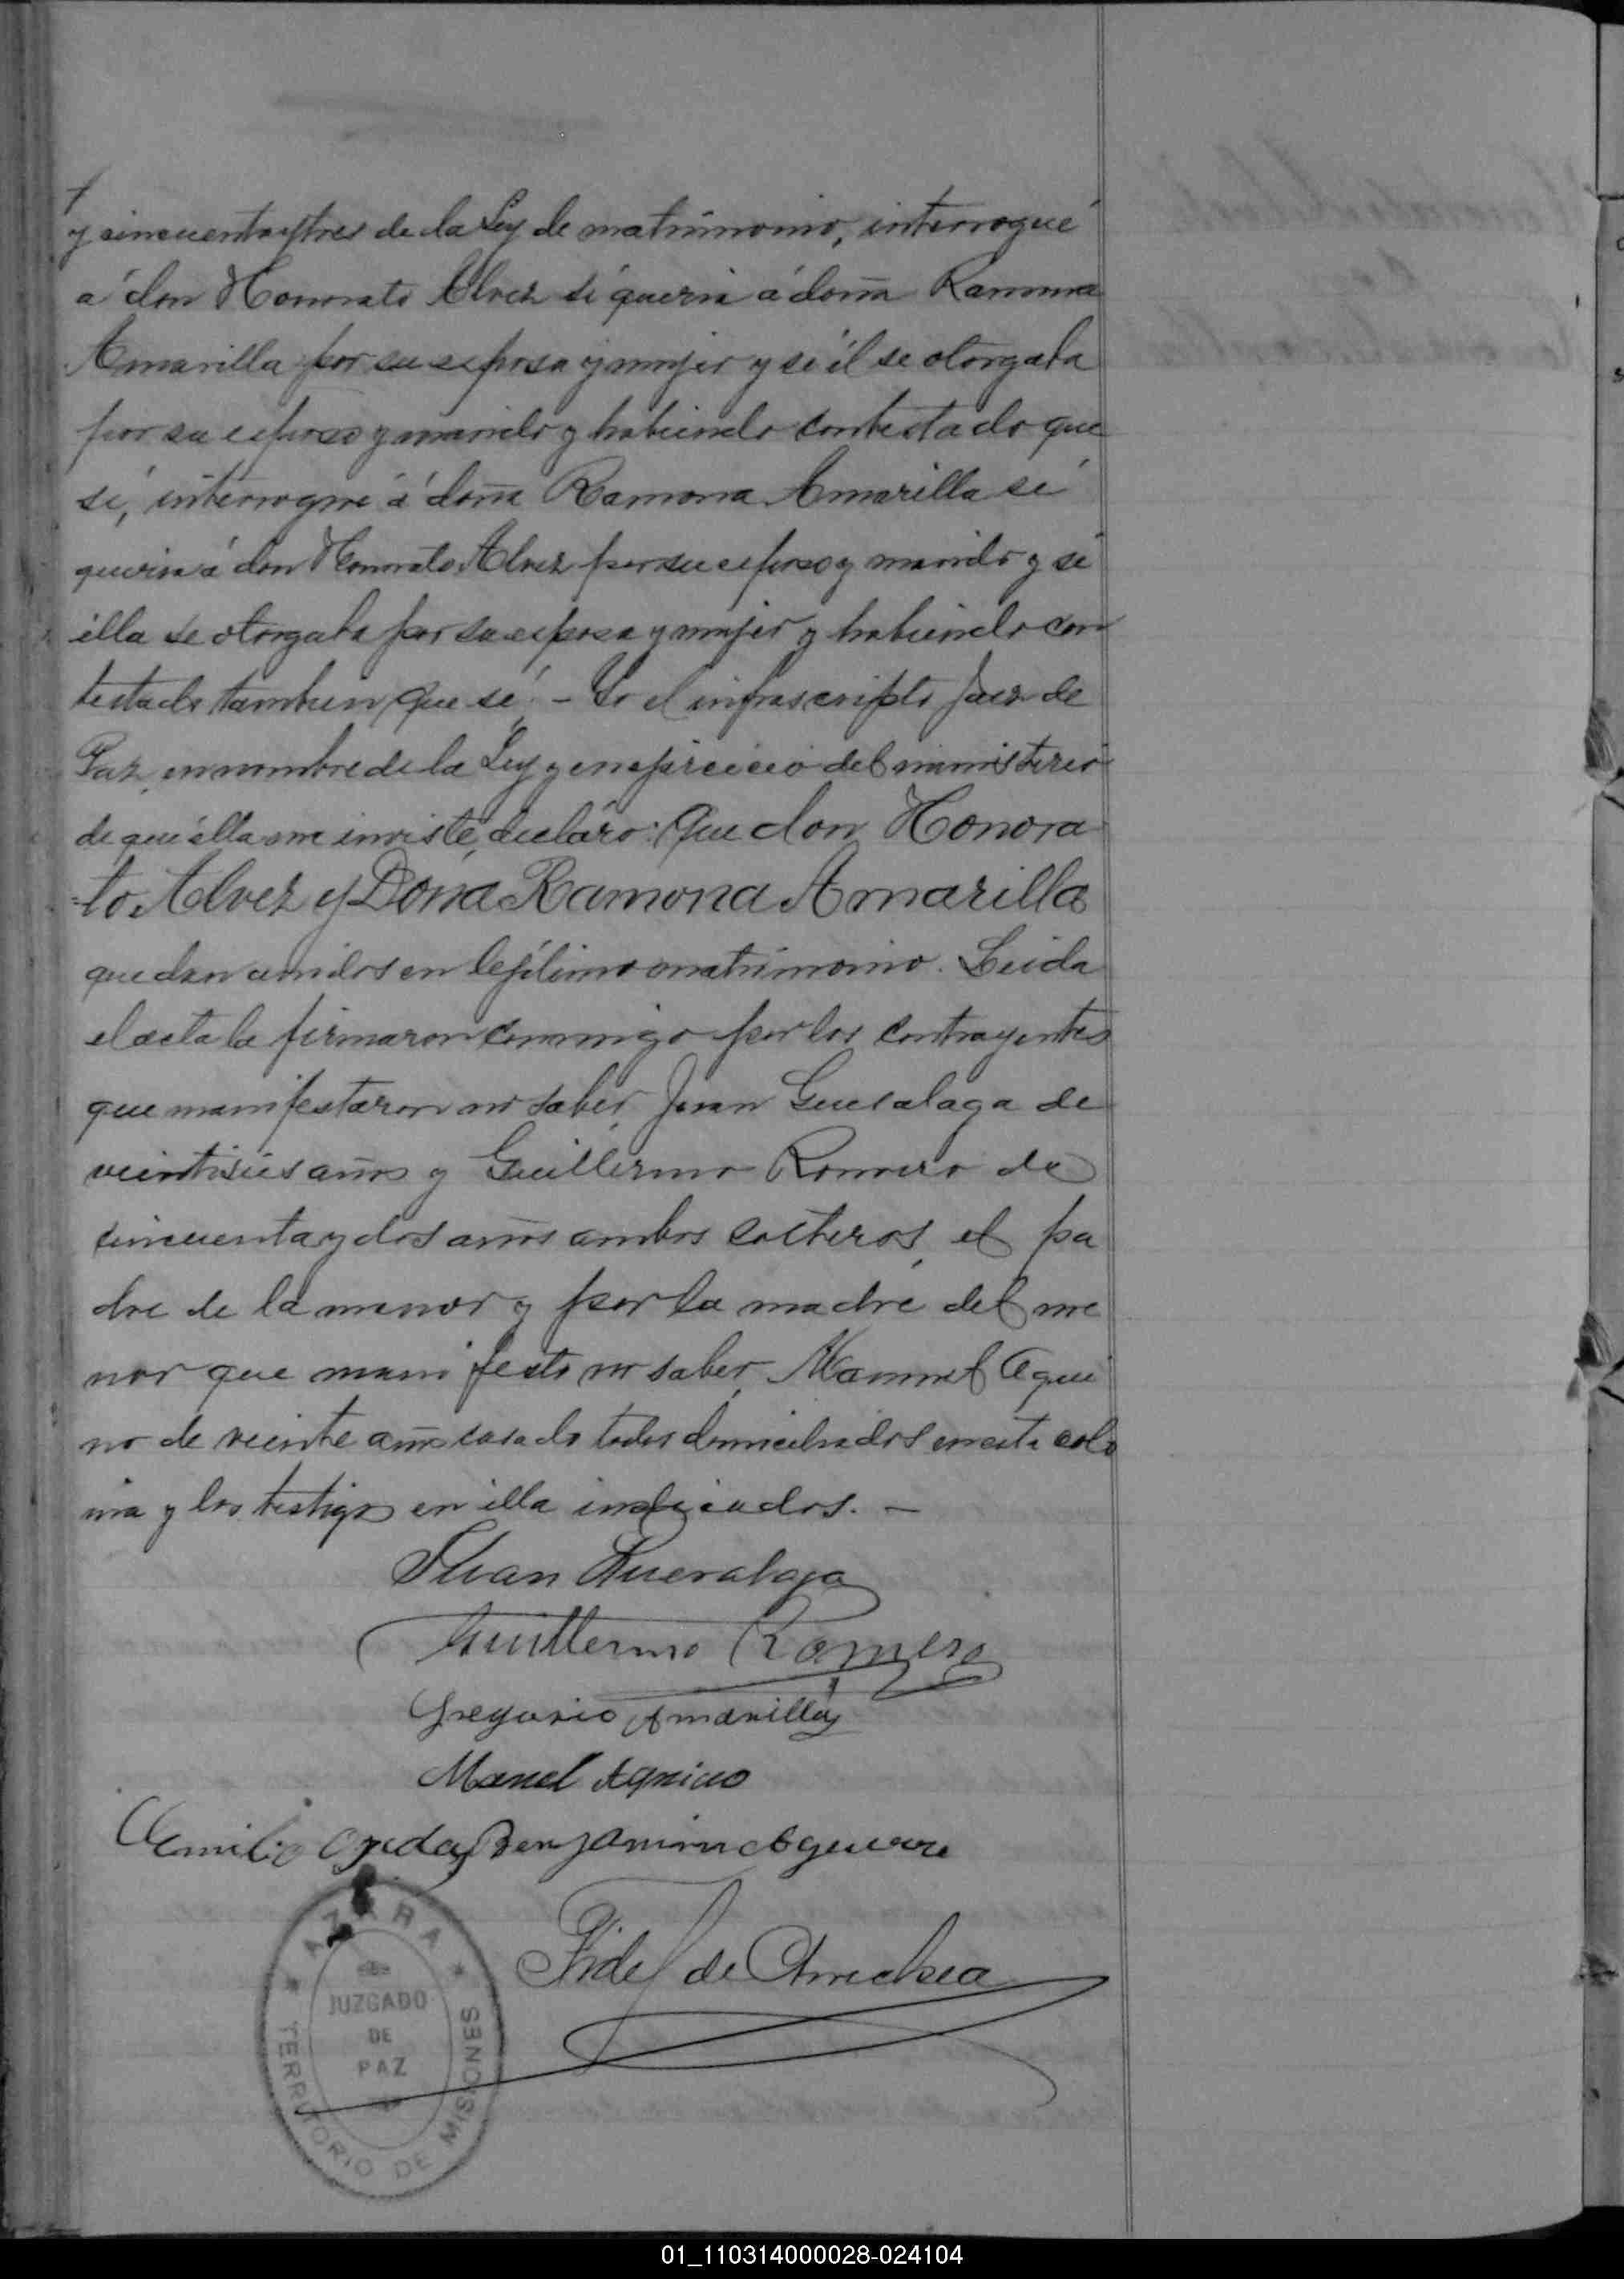 y cincuentaytres de la Ley de matrimonio, interrogué
á don Honorato Alvez si queria á doña Ramona
Amarilla por su esposa y mujer y si él se otorgaba
por su esposo y marido y habiendo contestado que
sí, interrogué á doña Ramona Amarilla si
queria á don Honorato Alvez por su esposo y marido y si
ella se otorgaba por su esposa y mujer y habiendo con
testado tambien que sí. - Yo el infrascripto Juez de
Paz, en nombre de la Ley y en ejercicio del ministerio
de que ella me inviste, declaro: Que don Honora
=to Alvez y Doña Ramona Amarilla
quedan unidos en lejítimo matrimonio. Leida
el acta la firmaron conmigo por los contrayentes
que manifestaron no saber, Juan Guesalaga de
veintiseis años y Guillermo Romero de
cincuenta y dos años ambos solteros, el pa
dre de la menor y por la madre del me
nor que manifestó no saber, Manuel Aqui
no de veinte años casado todos domiciliados en esta colo
nia y los testigos en ella indicados. -
Juan Guesalaga
Guillermo Romero
Gregorio Amarilla
Manel Aquino
Emilio Ojeda Benjamin Aguirre
Fidel de Amechea
AZARA
JUZGADO
DE
PAZ
TERRITORIO DE MISIONES
01_110314000028-024104